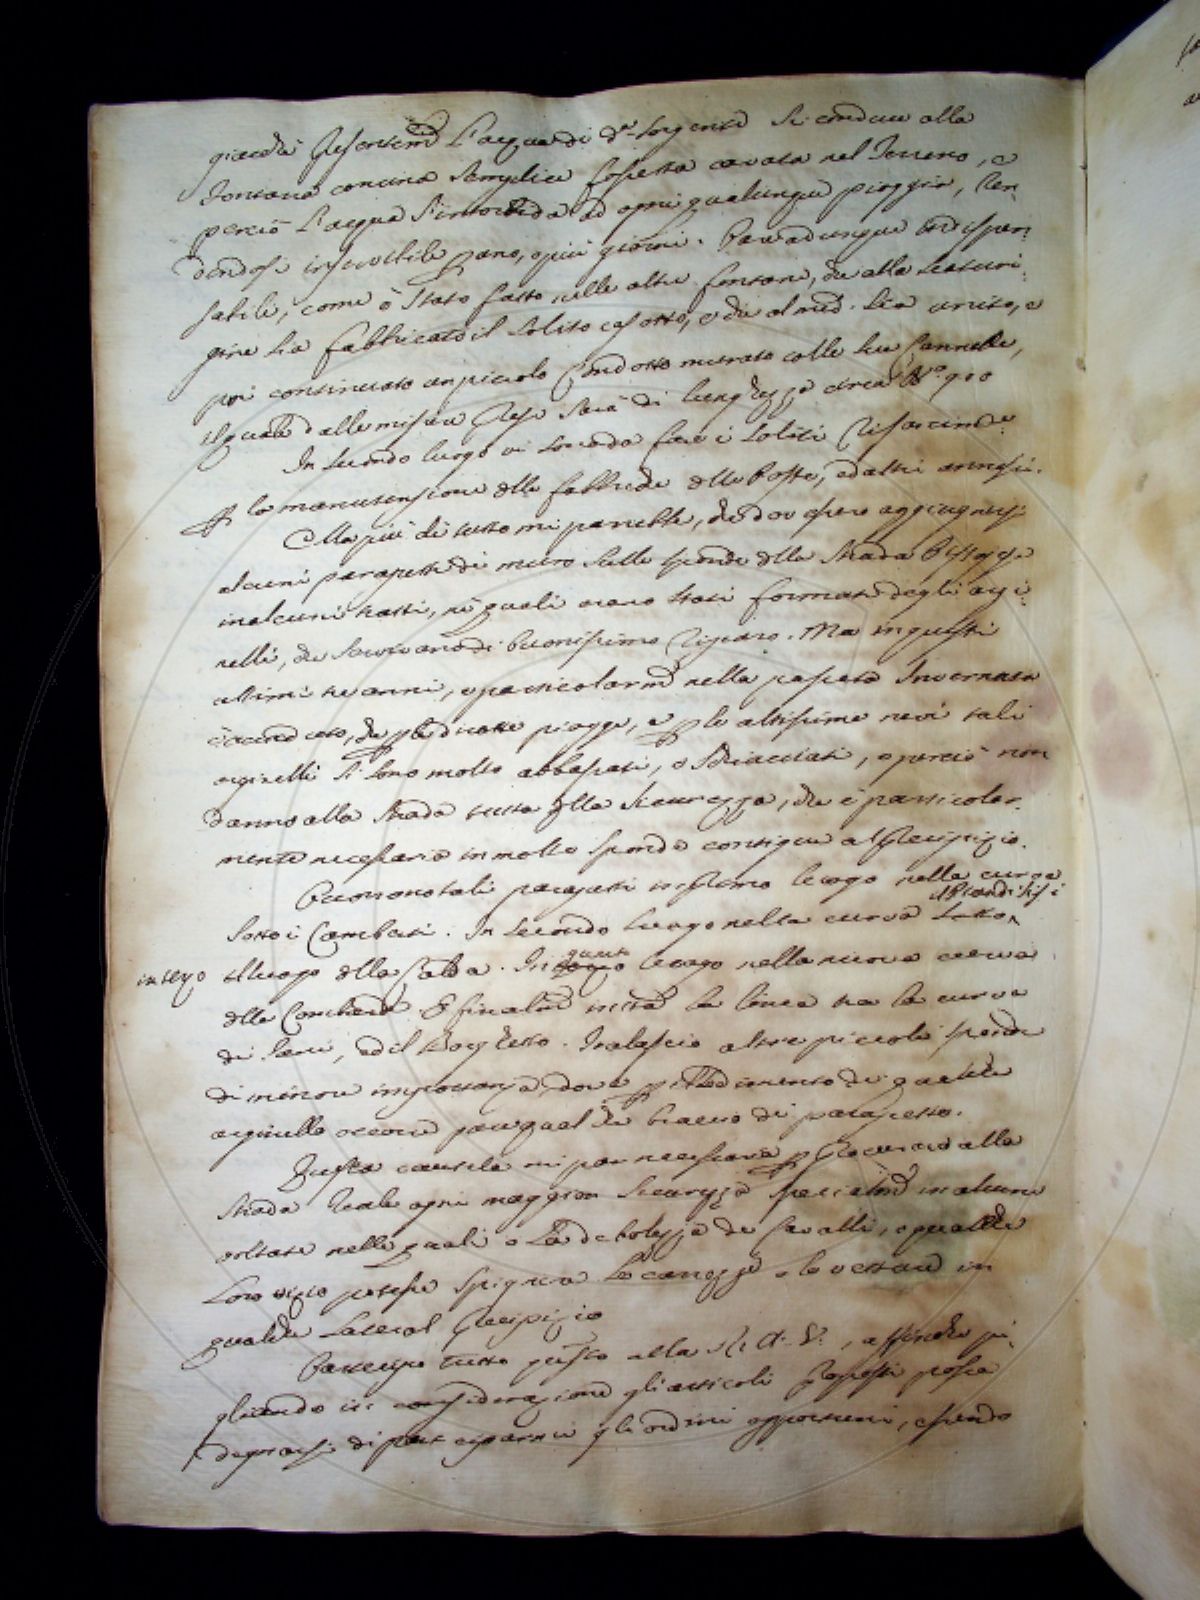 giacchè presentem.e l'acqua di d.a sorgente si conduce alla
Fontana con una semplice fossetta cavata nel Terreno, e
perciò l'acqua s'intorbida ad ogni qualunque pioggia, ren-
dendosi inservibile p uno, o più giorni. Pare adunque indispen-
sabile, come è stato fatto nelle altre fontane, che alla scaturi-
gine sia fabbricato il solito casotto, e che al med. sia unito, e
poi continuato un piccolo condotto murato colle sue Cannelle,
il quale dalle misure prese sarà di lunghezza circa 900
In secondo luogo vi sono da fare i soliti
p la manutenzione delle fabbriche delle Poste, ed altri annessi.
Ma più di tutto mi parrebbe, che dovessero aggiugnersi
alcuni parapetti di muro sulle sponde della strada
in alcuni tratti, ne' quali erano stati formati degli argi-
nelli, che servivano di buonissimo riparo. Ma in questi
ultimi tre anni, e particolarm.e nella passata Invernata
è accaduto, che p le dirotte piogge, e p le altissime nevi tali
arginelli si sono molto abbassati, e schiacciati, e perciò non
danno alla strada tutta quella sicurezza, che è particolar-
mente necessaria in molte sponde contigue al precipizio.
tali parapetti in primo luogo nella curva
sotto i Cambiati. In secondo luogo nella curva sotto
in terzo il luogo della . In quarto luogo nella nuova curva
della E finalm.e in tutta la linea tra la curva
di , ed il Borghetto. Tralascio altre piccole sponde
di minore importanza, dove p il cedimento di qualche
arginello occorre pure qualche braccio di parapetto.
Questa cautela mi par necessaria p procurare alla
strada Reale ogni maggior sicurezza specialm.e in alcune
voltate nelle quali o la debolezza de' cavalli, o qualche
loro vizio potesse spignere le carrozze o le vetture in
qualche lateral precipizio
Partecipo tutto questo alla R. A. V., affinchè pi-
gliando in considerazione gli articoli proposti possa
degnarsi di parteciparmi gli ordini opportuni, essendo